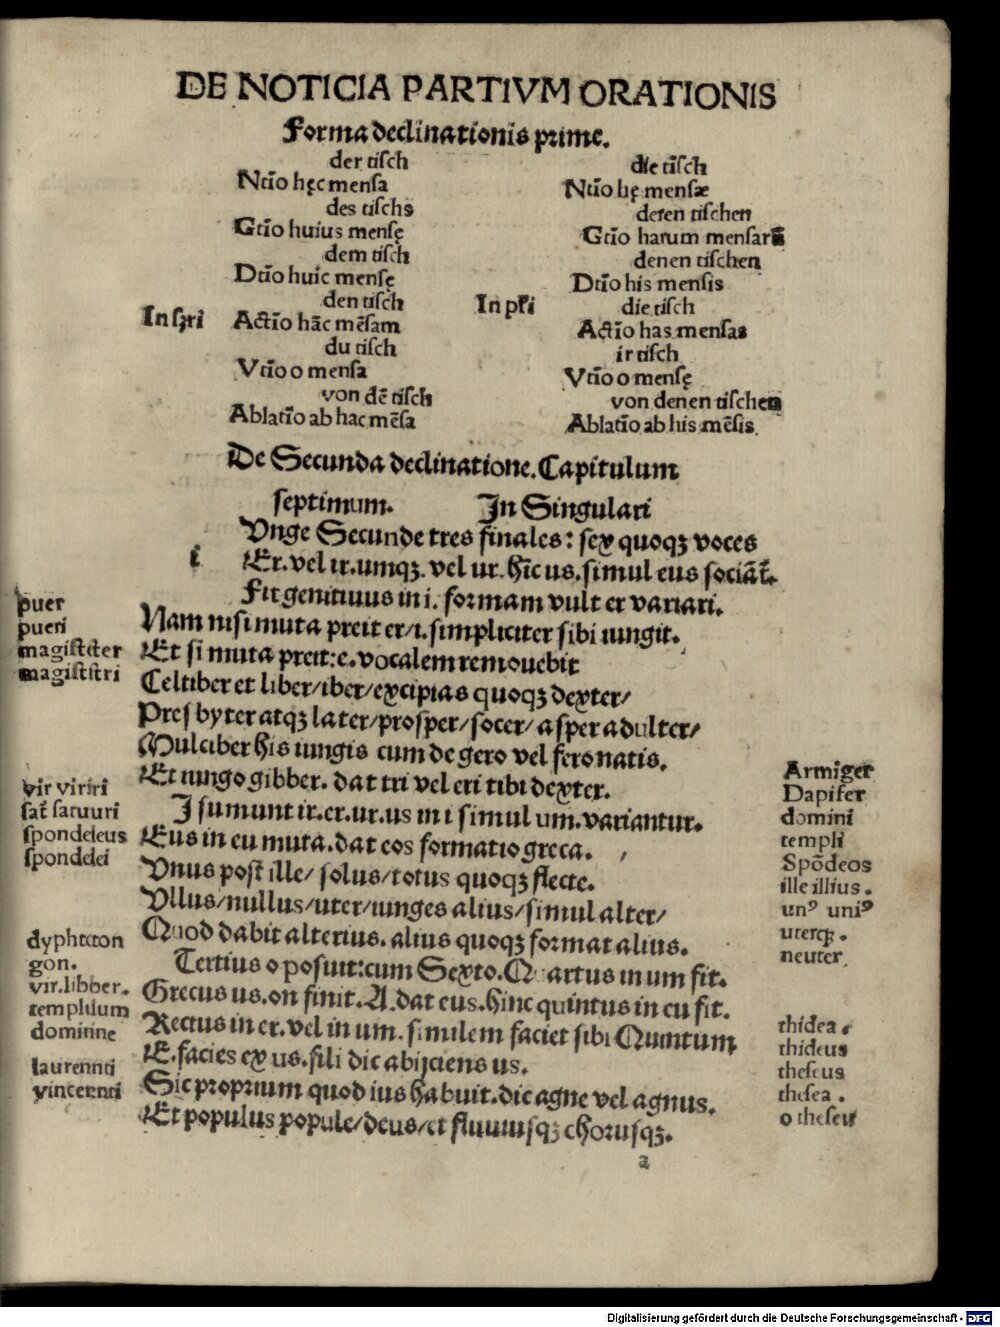 DE NOTICIA PARTIVM ORATIONIS
Forma declinationis prime.
der tiſch
Ntīo hęc menſa
des tiſchs
Gtīo huius menſę
dem tiſch
Dtīo huic menſę
den tiſch
In ſꝫri Actīo hāc mēſam
du tiſch
Vtīo o menſa
von dē tiſch
Ablatīo ab hac mēſa
die tiſch
Ntīo hę menſæ
deren tiſchen
Gtīo harum menſarū
denen tiſchen
Dtīo his menſis
die tiſch
In płi Actīo has menſas
ir tiſch
Vtīo o menſę
von denen tiſchen
Ablatīo ab his mēſis.
De Secunda declinatione. Capitulum
ſeptimum. In Singulari
i
Vnge Secunde tres finales: ſex quoqꝫ voces
Er. vel ir. umqꝫ. vel ur. hīc us. ſimul eus ſociāt̄.
Fit genitiuus in i. formam vult er variari.
Nam niſi muta preit er/i. ſimpliciter ſibi iungit.
Et ſi muta preit: e. vocalem remouebit
Celtiber et liber/iber/excipias quoqꝫ dexter/
Preſbyter atqꝫ later/proſper/ſocer/aſper adulter/
Mulciber his iungis cum de gero vel fero natis.
Et iungo gibber. dat tri vel eri tibi dexter.
I ſumunt ir. er. ur. us in i ſimul um. variantur.
Eus in eu muta. dat eos formatio greca.
Vnus poſt ille/ ſolus/totus quoqꝫ flecte.
Vllus/nullus/uter/iunges alius/ſimul alter/
Quod dabit alterius. alius quoqꝫ format alius.
Tertius o poſuit: cum Sexto. Quartus in um fit.
Grecus us. on finit. A. dat eus. hinc quintus in eu fit.
Rectus in er. vel in um. ſimilem faciet ſibi Quintum
E. facies ex us. fili dic abijciens us.
Sic proprium quod ius habuit. dic agne vel agnus.
Et populus popule/deus/et fluuiuſqꝫ choruſqꝫ.
a
puer
pueri
magiſteter
magiſtſtri
vir viriri
ſat̄ ſatuuri
ſpondeieus
ſpondelei
dyphteton
gon.
vir. libber.
templulum
dominne
laurennti
vincernti
Armiger
Dapifer
domini
templi
Spōdeos
ille illius.
unꝰ uniꝰ
uterqꝫ.
neuter
thidea.
thideus
theſeus
theſea.
o theſeu
Digitalisierung gefördert durch die Deutsche Forschungsgemeinschaft - DFG